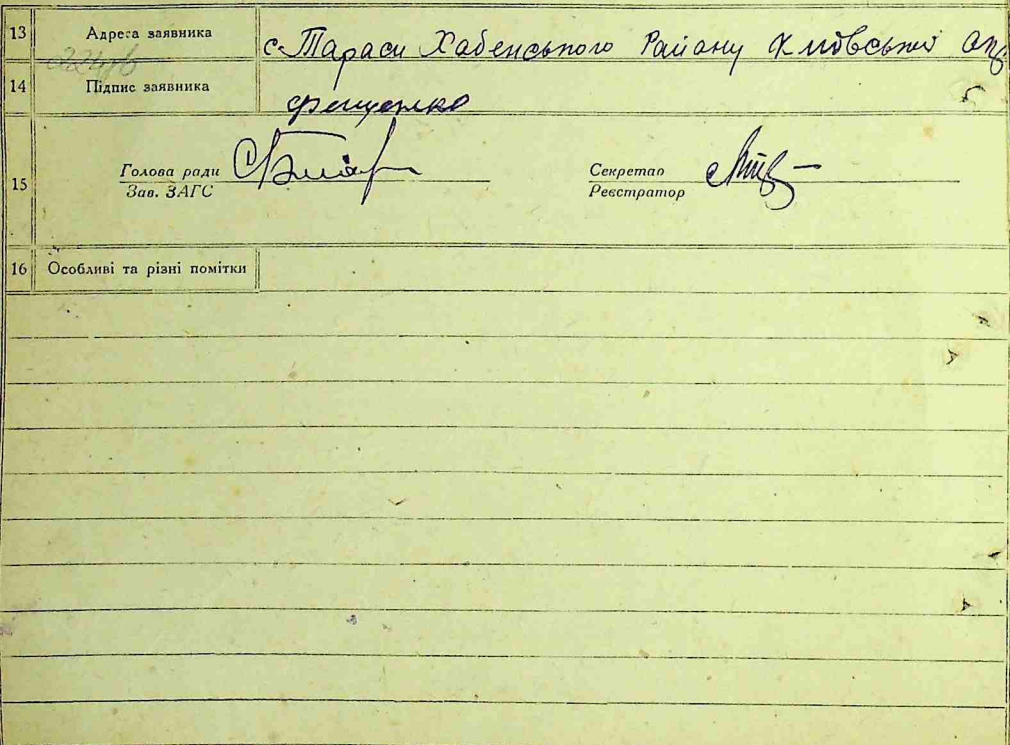 13 Адреса заявника с. Тараси Хабенського Району Київської
14 Підпис заявника Фещенко
15
Голова ради
Зав. ЗАГС
Секретар
Реєстратор
16 Особливі та різні помітки